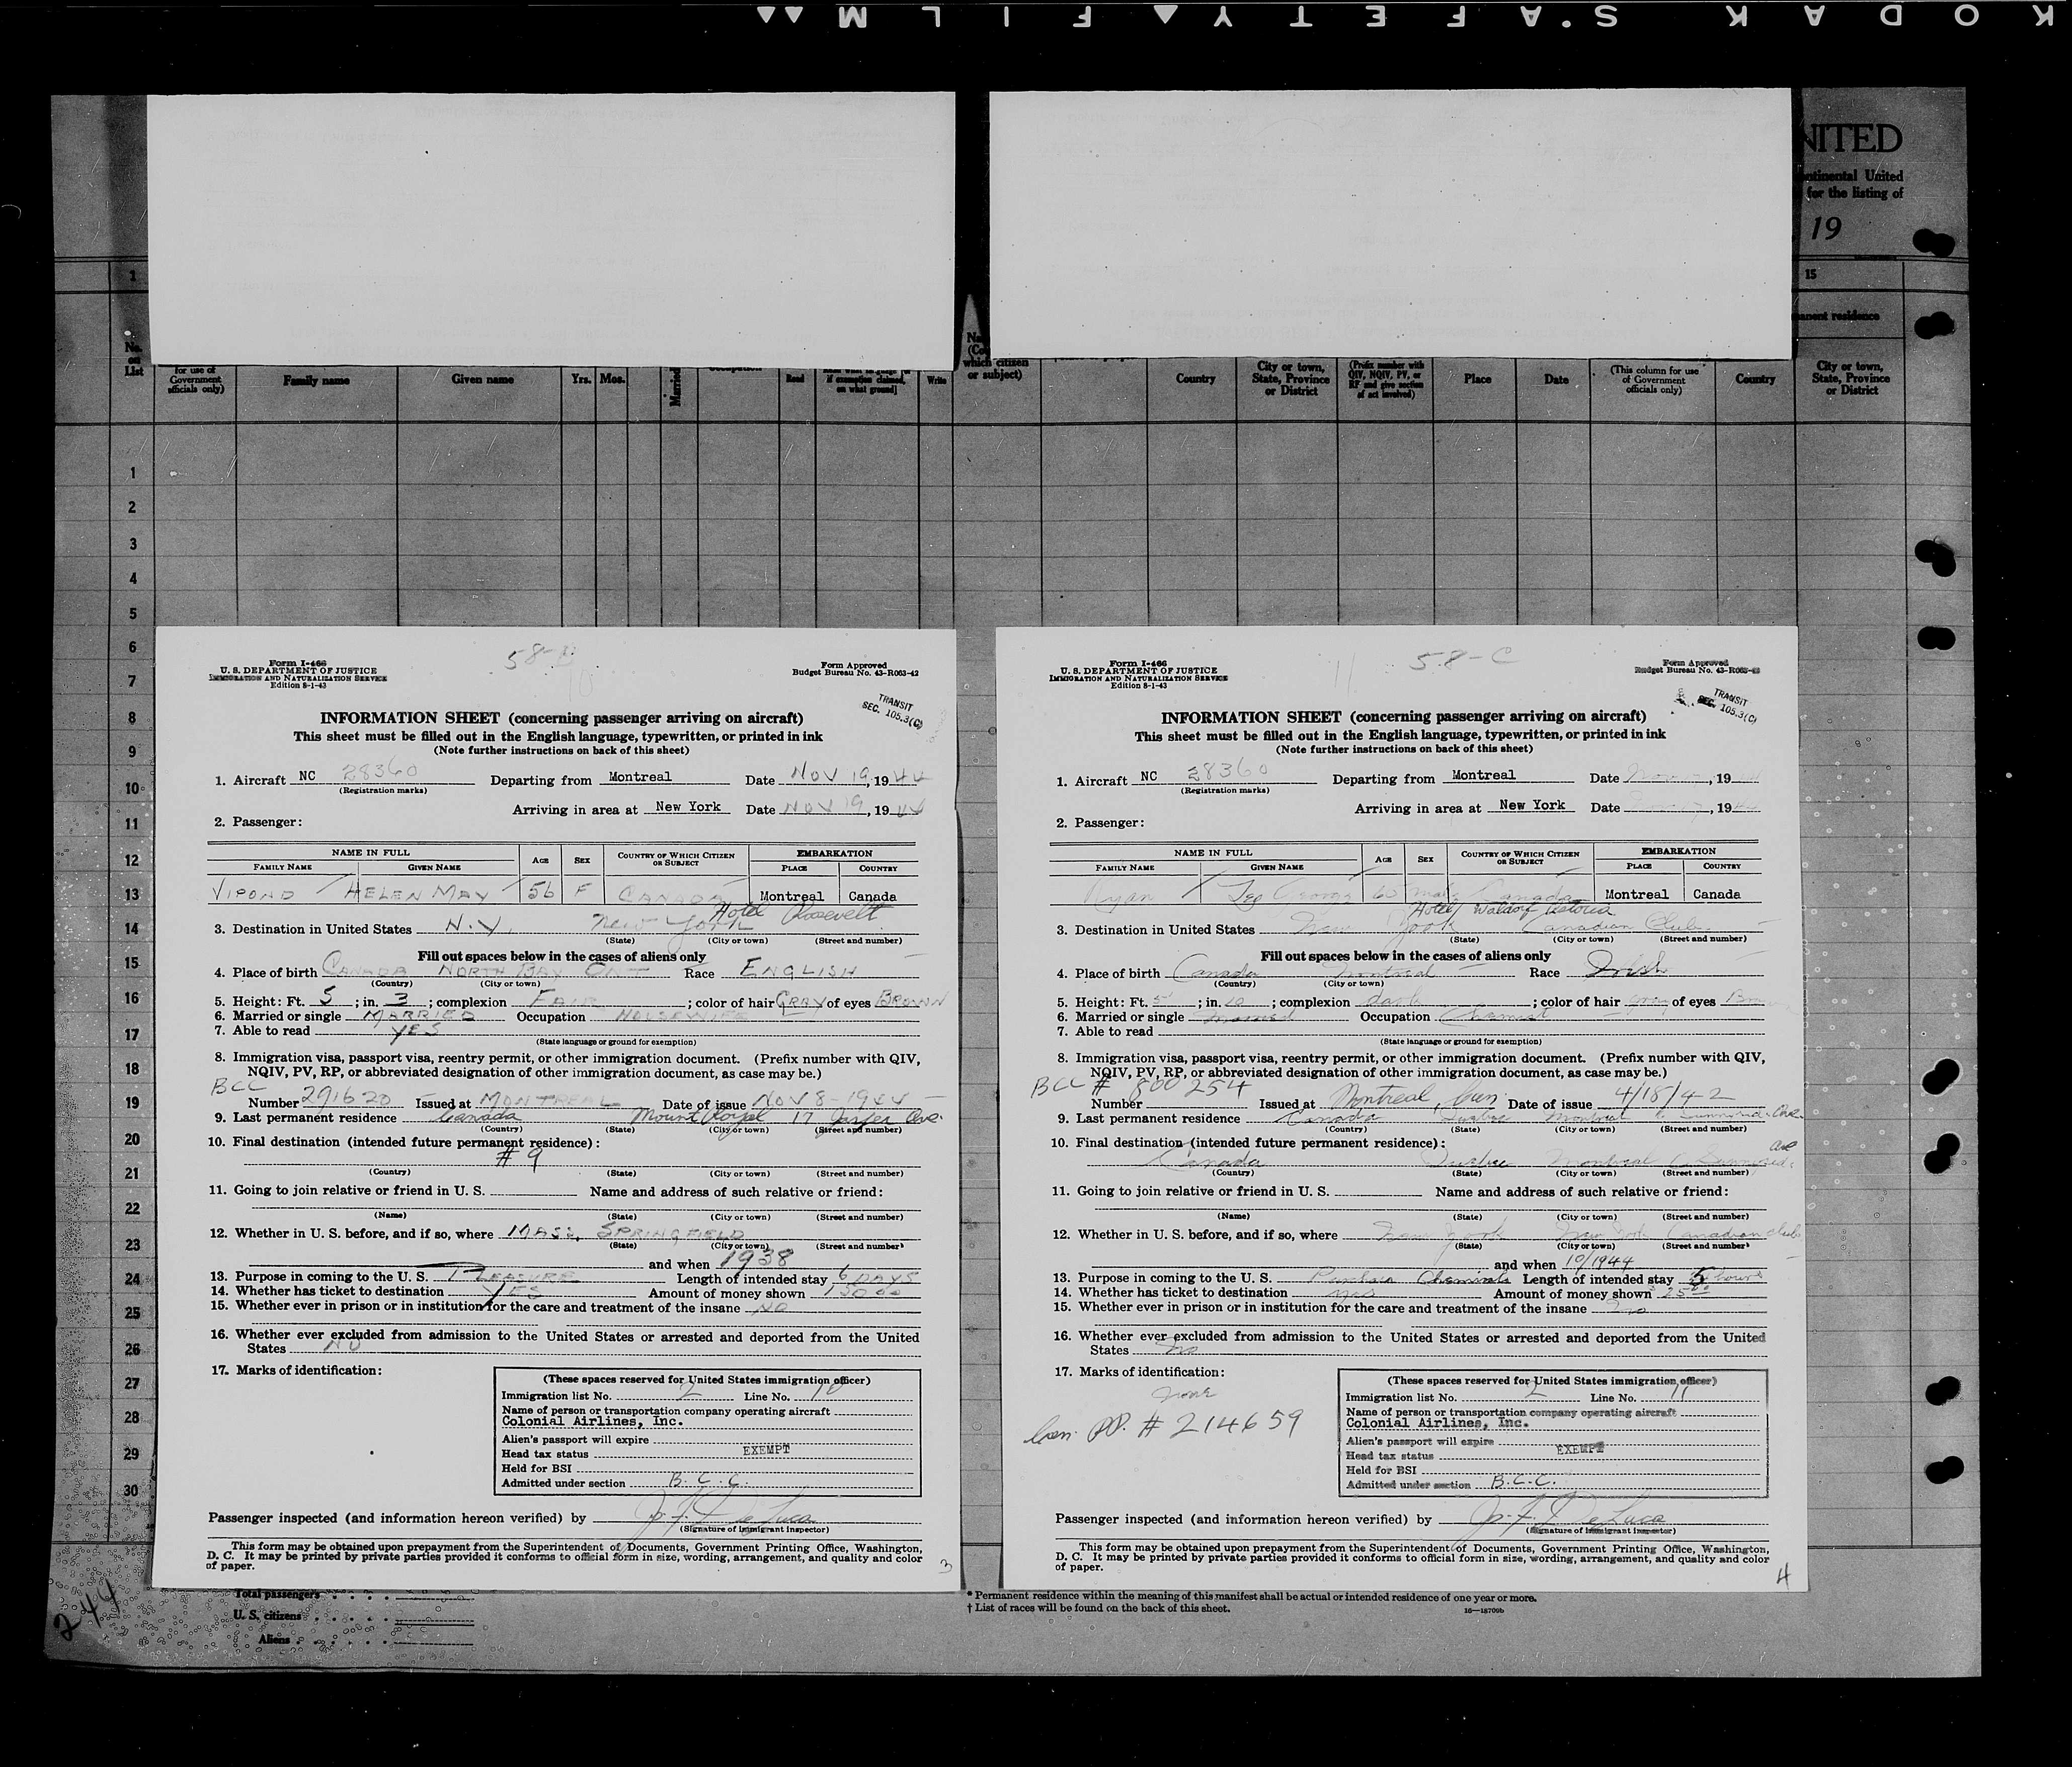 KODAK S'AFETY FILM
NITED
ntinental United
for the listing of
19
1
15
anent residence
No.
on
List
for use of
Government
officials only)
Family name
Given name
Yrs.
Mos.
Married
Read
if exemption claimed,
on what ground]
Write
which citizen
or subject)
Country
City or town,
State, Province
or District
(Prefix number with
QIV, NQIV, PV, or
RF and give section
of act involved)
Place
Date
(This column for use
of Government
officials only)
Country
City or town,
State, Province
or District
1
2
3
4
5
6
7
8
9
10
11
12
13
14
15
16
17
18
19
20
21
22
23
24
25
26
27
28
29
30
58-B
10
Form I-466
U. S. DEPARTMENT OF JUSTICE
IMMIGRATION AND NATURALIZATION SERVICE
Edition 8-1-43
Form Approved
Budget Bureau No. 43-R063-42
TRANSIT
SEC. 105.3(C)
INFORMATION SHEET (concerning passenger arriving on aircraft)
This sheet must be filled out in the English language, typewritten, or printed in ink
(Note further instructions on back of this sheet)
1. Aircraft NC 28360 Departing from Montreal Date NOV 19, 1944
(Registration marks)
Arriving in area at New York Date NOV 19, 1944
2. Passenger:
NAME IN FULL AGE SEX COUNTRY OF WHICH CITIZEN OR SUBJECT EMBARKATION
FAMILY NAME GIVEN NAME PLACE COUNTRY
VIPOND HELEN MAY 56 F CANADA Montreal Canada
Hotel Roosevelt
3. Destination in United States N.Y. NEW YORK
(State) (City or town) (Street and number)
Fill out spaces below in the cases of aliens only
4. Place of birth CANADA NORTH BAY ONT Race ENGLISH
(Country) (City or town)
5. Height: Ft. 5; in. 3; complexion FAIR; color of hair GRAY of eyes BROWN
6. Married or single MARRIED Occupation HOUSEWIFE
7. Able to read YES
(State language or ground for exemption)
8. Immigration visa, passport visa, reentry permit, or other immigration document. (Prefix number with QIV,
NQIV, PV, RP, or abbreviated designation of other immigration document, as case may be.)
BCC
Number 291620 Issued at MONTREAL Date of issue NOV 8-1944
9. Last permanent residence Canada Mount Royal 17 Ave.
(Country) (State) (City or town) (Street and number)
10. Final destination (intended future permanent residence):
# 9
(Country) (State) (City or town) (Street and number)
11. Going to join relative or friend in U. S. Name and address of such relative or friend:
(Name) (State) (City or town) (Street and number)
12. Whether in U. S. before, and if so, where MASS. SPRINGFIELD
(State) (City or town) (Street and number)
and when 1938
13. Purpose in coming to the U. S. PLEASURE Length of intended stay 6 DAYS
14. Whether has ticket to destination YES Amount of money shown 150 00
15. Whether ever in prison or in institution for the care and treatment of the insane NO
16. Whether ever excluded from admission to the United States or arrested and deported from the United
States NO
17. Marks of identification:
(These spaces reserved for United States immigration officer)
Immigration list No. 2 Line No. 10
Name of person or transportation company operating aircraft
Colonial Airlines, Inc.
Alien's passport will expire
Head tax status EXEMPT
Held for BSI
Admitted under section B.C.C.
Passenger inspected (and information hereon verified) by De Luca
(Signature of immigrant inspector)
This form may be obtained upon prepayment from the Superintendent of Documents, Government Printing Office, Washington,
D. C. It may be printed by private parties provided it conforms to official form in size, wording, arrangement, and quality and color
of paper.
3
11
58-C
Form I-466
U. S. DEPARTMENT OF JUSTICE
IMMIGRATION AND NATURALIZATION SERVICE
Edition 8-1-43
Form Approved
Budget Bureau No. 43-R063-42
TRANSIT
SEC. 105.3(C)
INFORMATION SHEET (concerning passenger arriving on aircraft)
This sheet must be filled out in the English language, typewritten, or printed in ink
(Note further instructions on back of this sheet)
1. Aircraft NC 28360 Departing from Montreal Date Nov , 19
(Registration marks)
Arriving in area at New York Date , 19
2. Passenger:
NAME IN FULL AGE SEX COUNTRY OF WHICH CITIZEN OR SUBJECT EMBARKATION
FAMILY NAME GIVEN NAME PLACE COUNTRY
Ryan Leo 60 male Canada Montreal Canada
Hotel Waldorf Astoria
3. Destination in United States New York Canadian Club
(State) (City or town) (Street and number)
Fill out spaces below in the cases of aliens only
4. Place of birth Canada Montreal Race Irish
(Country) (City or town)
5. Height: Ft. 5; in. 10; complexion dark; color of hair gray of eyes Brown
6. Married or single Married Occupation Chemist
7. Able to read
(State language or ground for exemption)
8. Immigration visa, passport visa, reentry permit, or other immigration document. (Prefix number with QIV,
NQIV, PV, RP, or abbreviated designation of other immigration document, as case may be.)
BCC # 800254
Number Issued at Montreal, Can Date of issue 4/18/42
9. Last permanent residence Canada Quebec Montreal 6 Sunnyside Ave.
(Country) (State) (City or town) (Street and number)
10. Final destination (intended future permanent residence):
Canada Quebec Montreal 6 Sunnyside Ave
(Country) (State) (City or town) (Street and number)
11. Going to join relative or friend in U. S. Name and address of such relative or friend:
(Name) (State) (City or town) (Street and number)
12. Whether in U. S. before, and if so, where New York New York Canadian Club
(State) (City or town) (Street and number)
and when 10/1944
13. Purpose in coming to the U. S. Purchase Chemicals Length of intended stay 5 hours
14. Whether has ticket to destination yes Amount of money shown 25 00
15. Whether ever in prison or in institution for the care and treatment of the insane no
16. Whether ever excluded from admission to the United States or arrested and deported from the United
States no
17. Marks of identification:
none
Can. PP. # 214659
(These spaces reserved for United States immigration officer)
Immigration list No. 2 Line No. 11
Name of person or transportation company operating aircraft
Colonial Airlines, Inc.
Alien's passport will expire
Head tax status EXEMPT
Held for BSI
Admitted under section B.C.C.
Passenger inspected (and information hereon verified) by De Luca
(Signature of immigrant inspector)
This form may be obtained upon prepayment from the Superintendent of Documents, Government Printing Office, Washington,
D. C. It may be printed by private parties provided it conforms to official form in size, wording, arrangement, and quality and color
of paper.
4
244
Total passengers
U. S. citizens
Aliens
* Permanent residence within the meaning of this manifest shall be actual or intended residence of one year or more.
† List of races will be found on the back of this sheet.
16—18709b